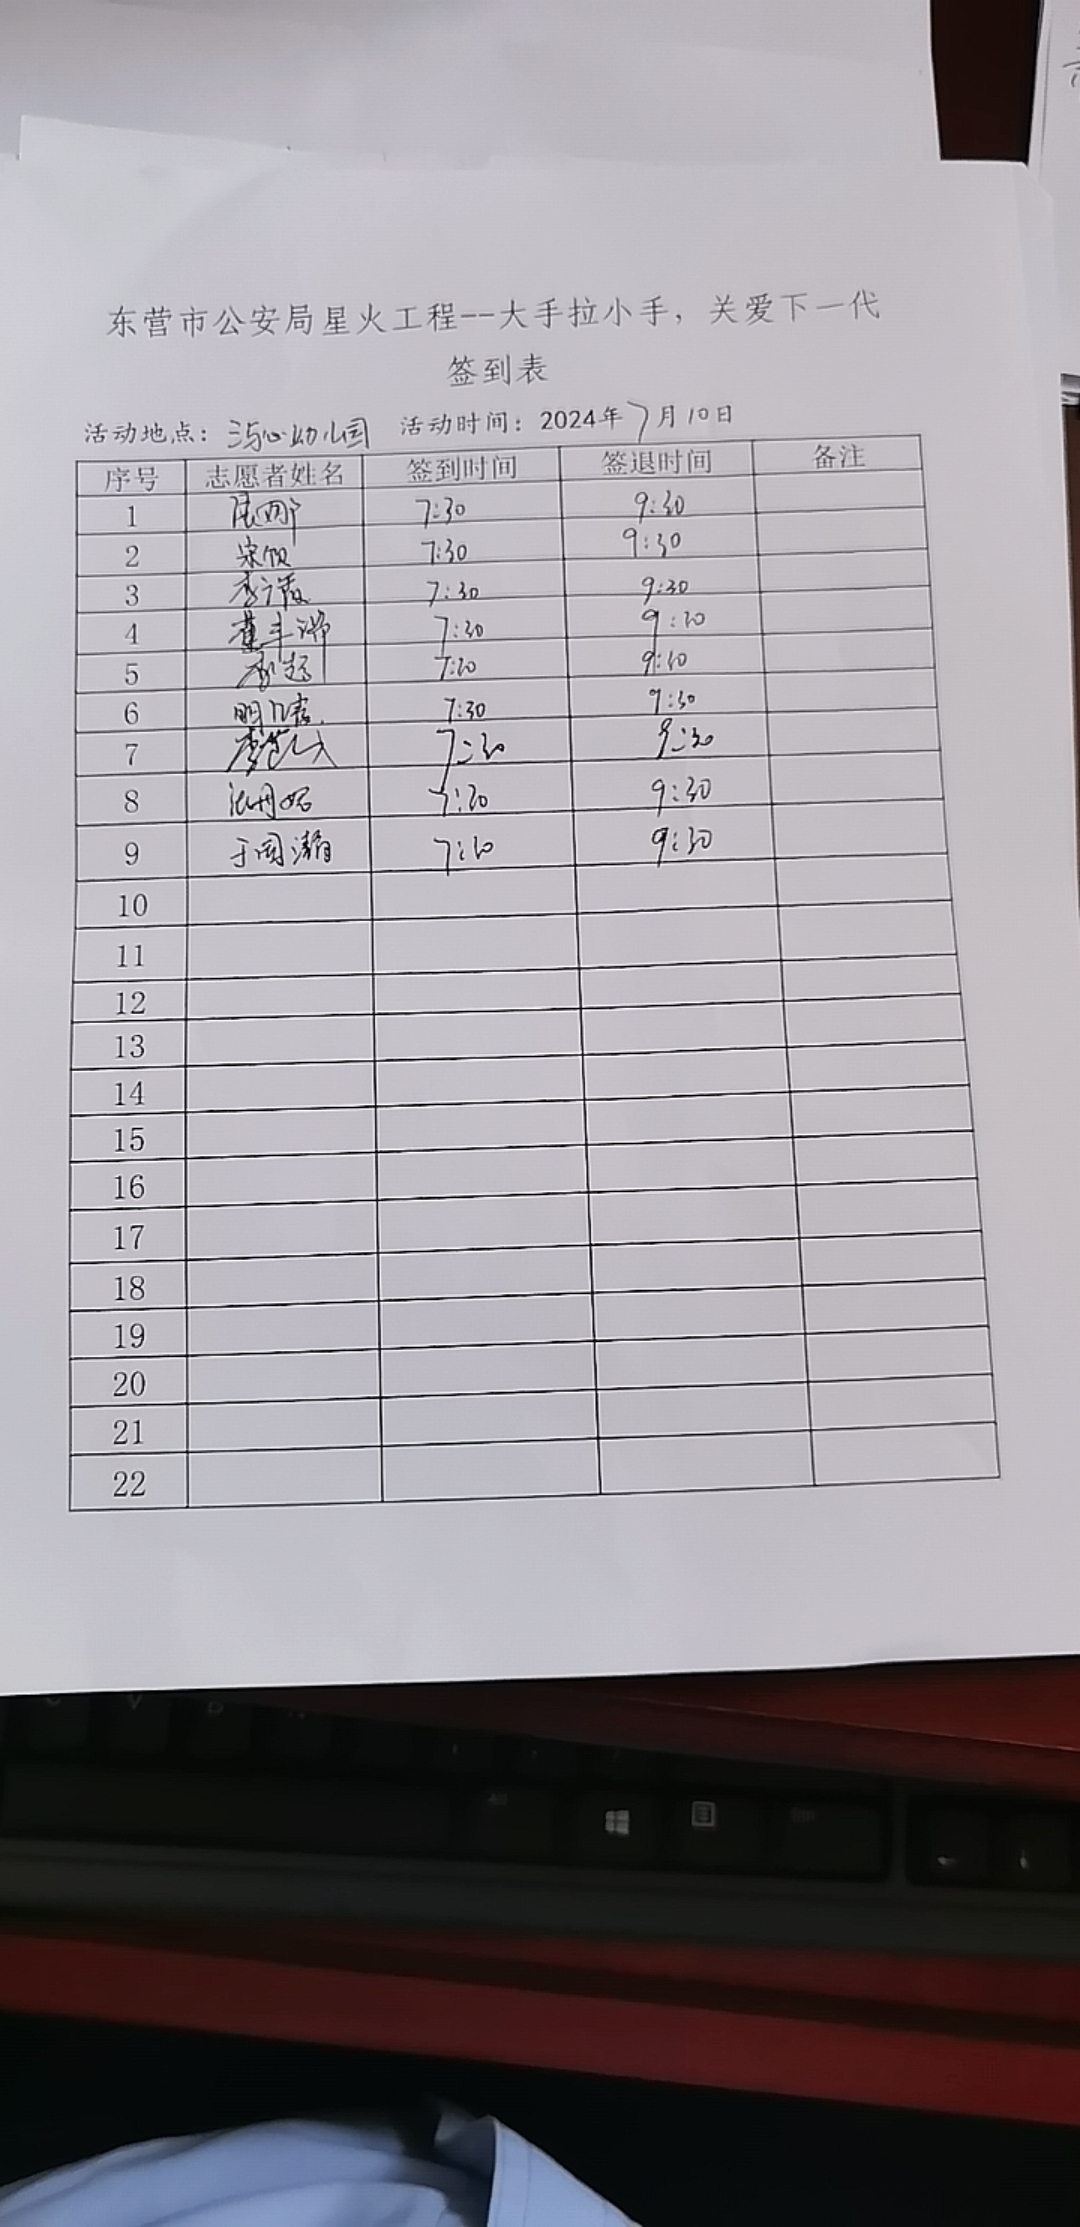 东营市公安局星火工程--大手拉小手，关爱下一代
签到表
活动地点： 幼儿园 活动时间：2024年7月10日
序号 志愿者姓名 签到时间 签退时间 备注
1 7:30 9:30
2 宋 7:30 9:30
3 李 7:30 9:30
4 董丰 7:30 9:30
5 李超 7:30 9:30
6 明 7:30 9:30
7 李 7:30 9:30
8 7:30 9:30
9 于國瀚 7:30 9:30
10
11
12
13
14
15
16
17
18
19
20
21
22